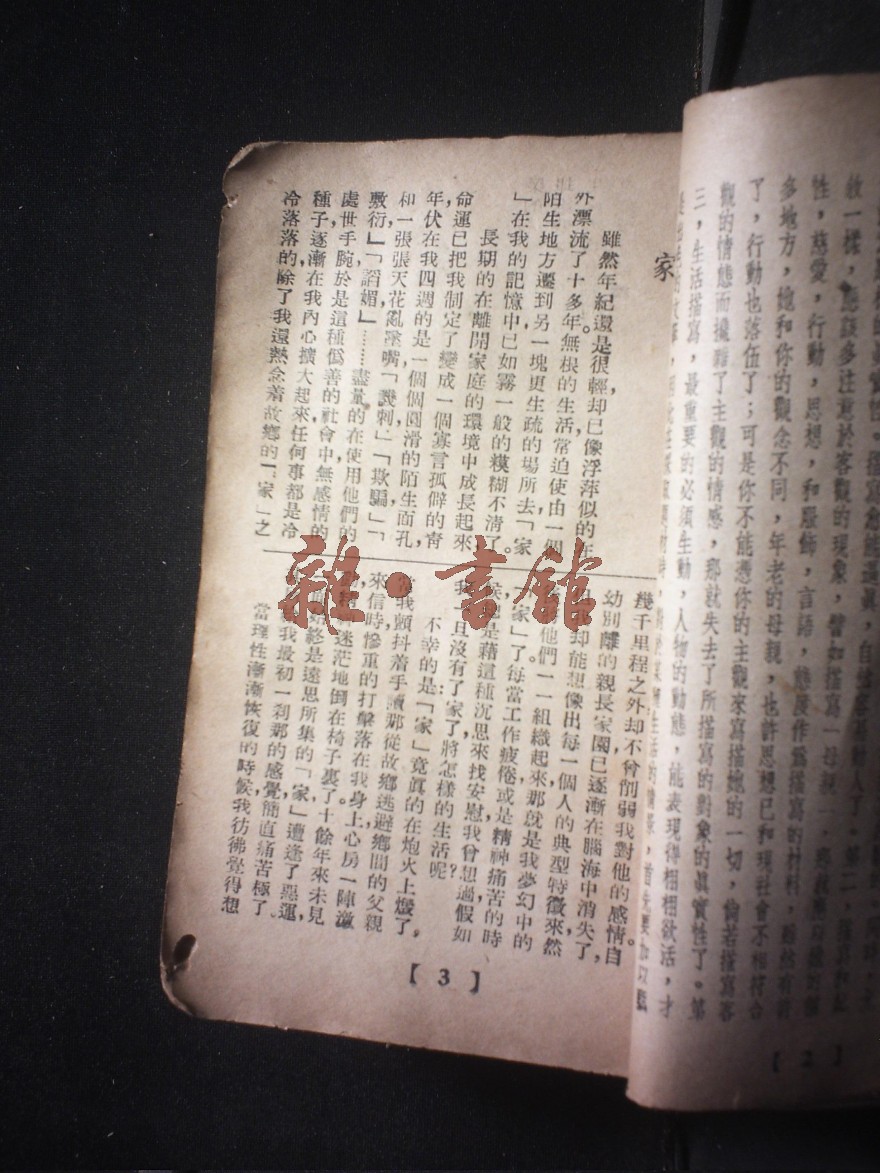 家
雖然年紀還是很輕,却已像浮萍似的在
外漂流了十多年。無根的生活常迫使由一個
陌生地方遷到另一塊更生疏的場所去「家
」在我的記憶中已如霧一般的糢糊不清了。
長期的在離開家庭的環境中成長起來
命運已把我制定了變成一個寡言孤僻的靑
年伏在我四週的是一個個圓滑的陌生面孔,
和一張張天花亂墜嘴「譏刺」「欺騙」「
敷衍」「謟媚」……盡量的在使用他們的
處世手腕於是這種僞善的社會中無感情的
種子逐漸在我內心擴大起來,任何事都是冷
冷落落的,除了我還熱念着故鄉的「家」之
幾千里程之外却不曾削弱我對他的感情。自
幼別離的親長家園已逐漸在腦海中消失了,
我却能想像出每一個人的典型特徵來,然
他們一一組織起來那就是我夢幻中的
「家」了每當工作疲倦或是精神痛苦的時
候總是藉這種沉思來找安慰我曾想過假如
我一旦沒有了家了將怎樣的生活呢?
不幸的是「家」竟眞的在炮火上燬了。
當我顫抖着手讀那從故鄉逃避鄉間的父親
來信時,慘重的打擊落在我身上心房一陣激
迷茫地倒在椅子裏了。十餘年來未見
始終是遠思所集的「家」遭逢了惡運,
給我最初一刹那的感覺簡直痛苦極了。
當理性漸漸恢復的時候,我彷彿覺得想
【3】
敘一樣,應該多注意於客觀的現象,譬如描寫一母親
性,慈愛,行動,思想,和服飾,言語,態度作爲描寫的材料,雖然有許
多地方,她和你的觀念不同,年老的母親,也許思想已和現社會不相符合
了,行動也落伍了;可是你不能憑你的主觀來寫描她的一切,倘若描寫客
觀的情態而攙雜了主觀的情感,那就失去了所描寫的對象的眞實性了。第
三,生活描寫,最重要的必須生動,人物的動態,能表現得栩栩欲活,才
【2】
雜·書館